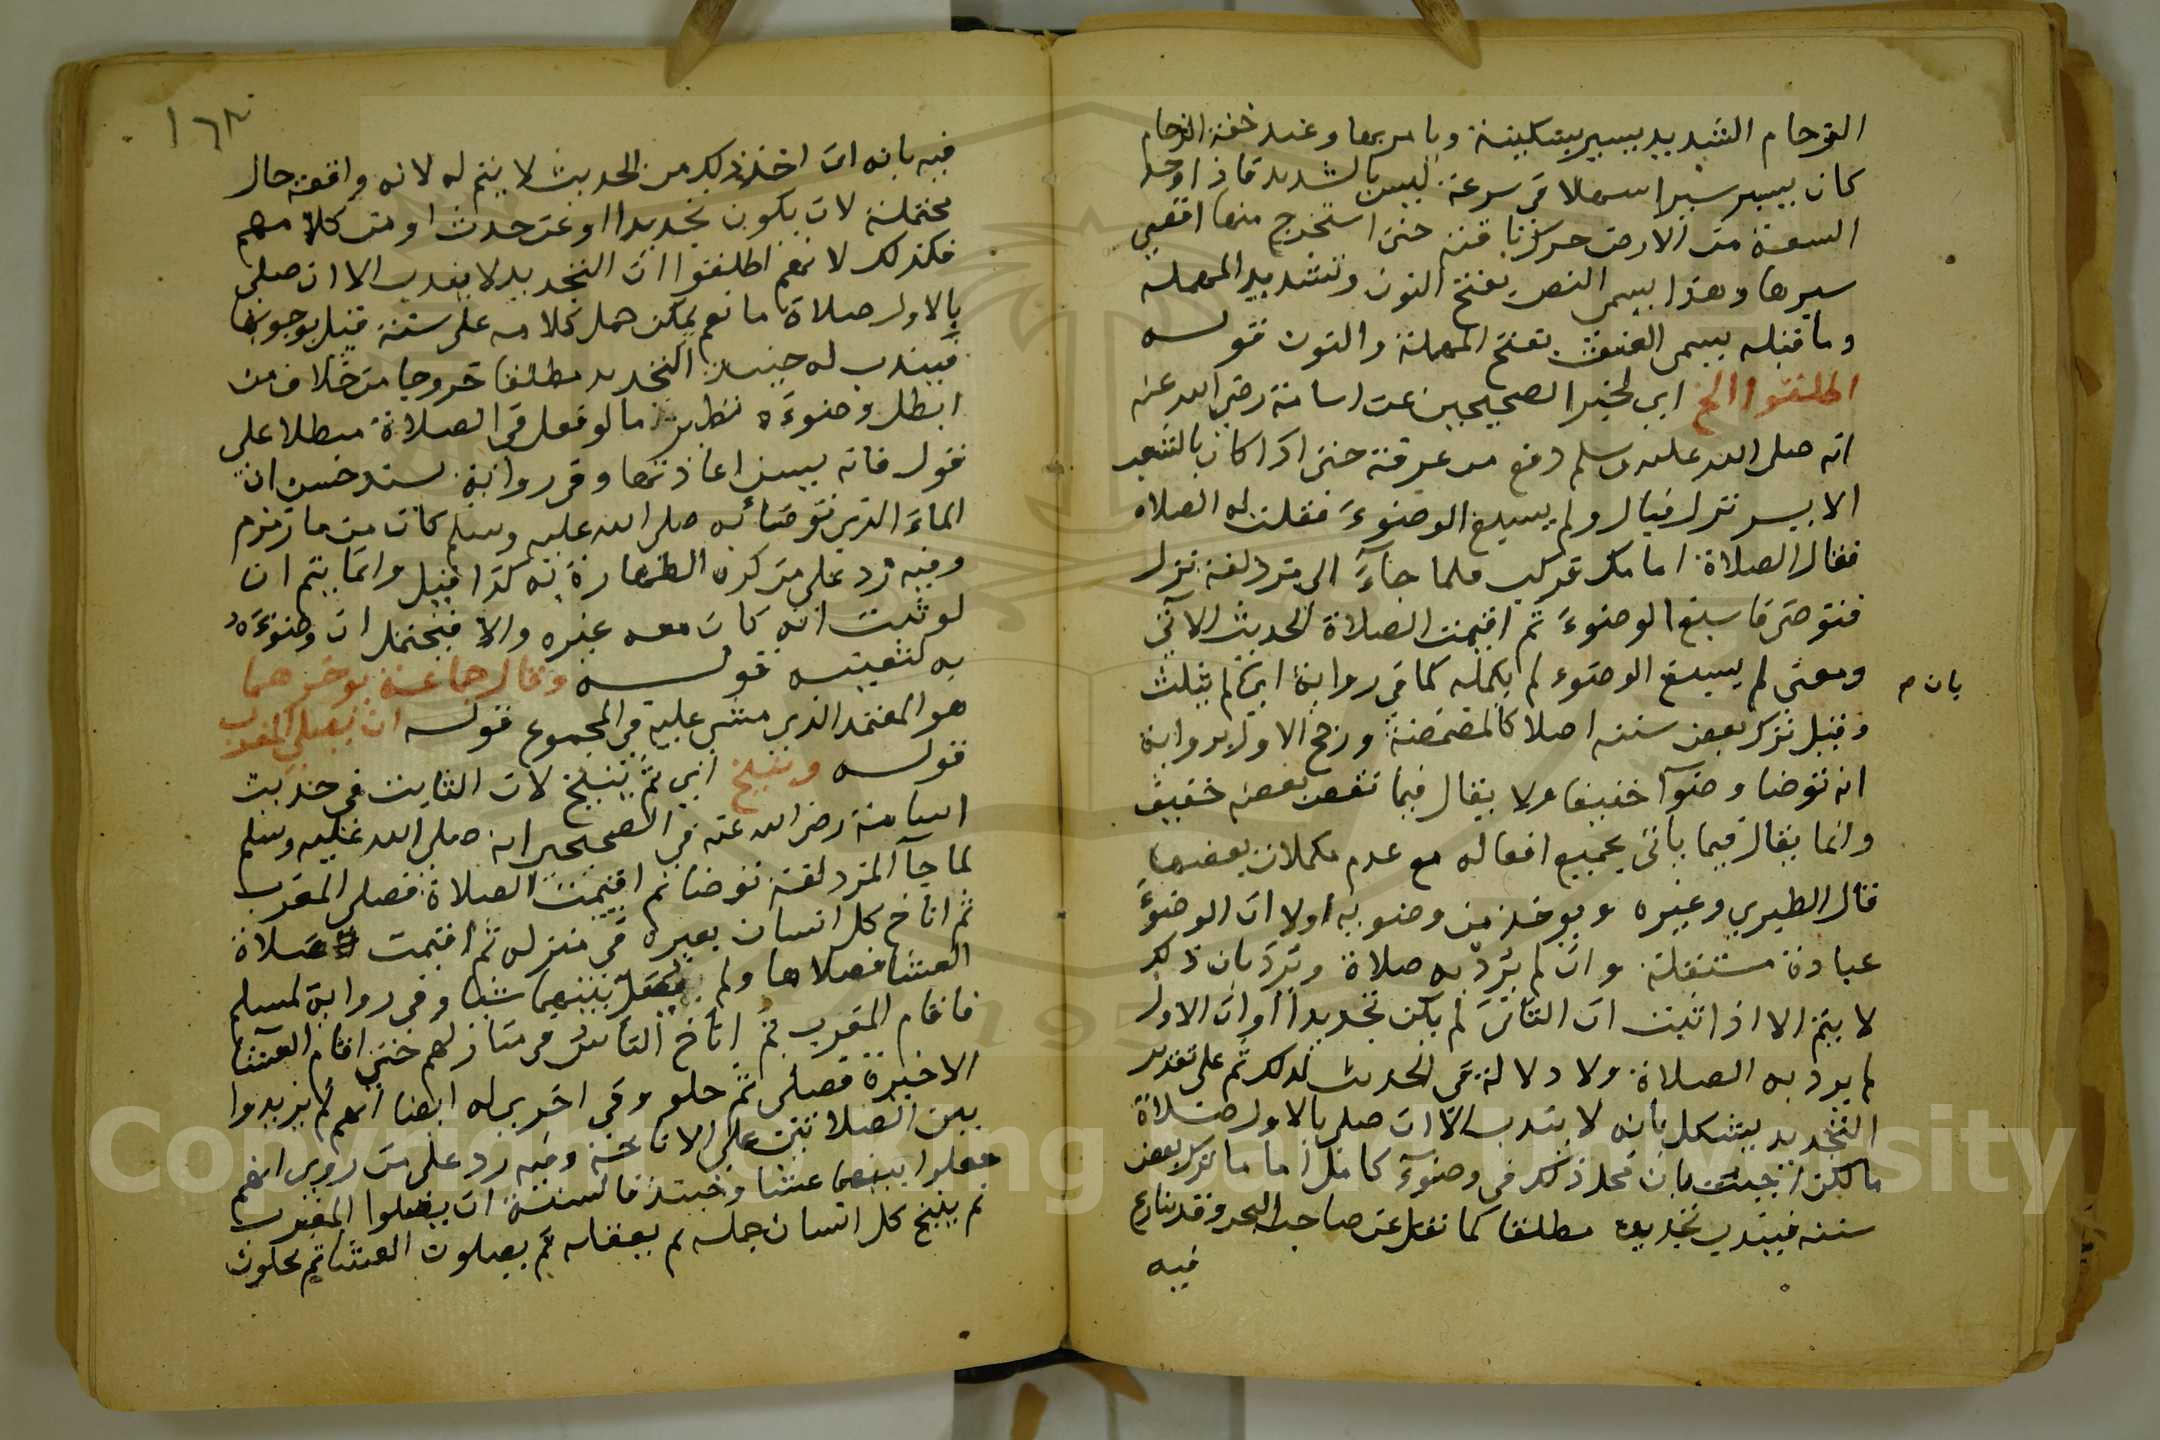 الزحام الشديد يسير بسكينة ويامر بها وعند خفة الزحام
كان يسير سيرا سهلا في سرعة ليس بالشديد فاذا وجد
السعة من الارض حرك ناقته حتى استخرج منها اقصى
سيرها وهذا يسمى النص بفتح النون وتشديد المهملة
وما قبله يسمى العنق بفتح المهملة والنون قوله
اطلقوا الخ اي لخبر الصحيحين عن اسامة رضي الله عنه
انه صلى الله عليه وسلم دفع من عرفة حتى اذا كان بالشعب
الايسر نزل فبال ولم يسبغ الوضوء فقلت له الصلاه
فقال الصلاة امامك فركب فلما جاء الى مزدلفة نزل
فتوضى فاسبغ الوضوء ثم اقيمت الصلاة الحديث الآتي
ومعنى لم يسبغ الوضوء لم يكمله كما في رواية اي لم يثلث
بان م
وقيل ترك بعض سننه اصلا كالمضمضة ورجح الاول برواية
انه توضا وضوآ خفيفا ولا يقال فيما نقص بعضه خفيف
وانما يقال فيما ياتي بجميع افعاله مع عدم مكملات بعضها
قال الطبري وغيره ويوخذ من وضويه اولا ان الوضوء
عبادة مستقلة وان لم يرد به صلاة ويرد بان ذلك
لا يتم الا اذا ثبت ان الثاني لم يكن تجديدا او ان الاول
لم يرد به الصلاة ولا دلالة في الحديث لذلك ثم على تقدير
التجديد يشكل بانه لا يندب الا ان صلى بالاول صلاة
ما لكن اجيب بان محل ذلك في وضوء كامل اما ما ترك بعض
سننه فيندب تجديده مطلقا كما نقل عن صاحب البحر وقد ينازع
فيه
١٦٣
فيه بانه ان اخذ ذلك من الحديث لا يتم له لانه واقعة حال
محتملة لان يكون تجديدا او عن حدث او من كلامهم
فكذلك لانهم اطلقوا ان التجديد لا يندب الا ان صلى
بالاول صلاة ما نعم يمكن حمل كلامه على سنة قيل بوجوبها
فيندب له حينئذ التجديد مطلقا خروجا من خلاف من
ابطل وضوءه نظير ما لو فعل في الصلاة مبطلا على
قول فانه يسن اعادتها وفي رواية بسند حسن ان
الماء الذي توضأ به صلى الله عليه وسلم كان من ما زمزم
وفيه رد على من كره الطهارة به كذا قيل وانما يتم ان
لو ثبت انه كان معه غيره والا فيحتمل ان وضوءه
به لتعينه قوله وقال جماعة يوخرهما
هو المعتمد الذي مشى عليه في المجموع قوله ان يصلي المغرب
قوله وينيخ اي ثم ينيخ لان الثابت في حديث
اسامة رضي الله عنه في الصحيحين انه صلى الله عليه وسلم
لما جآ المزدلفة توضا ثم اقيمت الصلاة فصلى المغرب
ثم اناخ كل انسان بعيره في منزله ثم اقيمت صلاة
العشا فصلاها ولم يصل بينهما شيا وفي رواية لمسلم
فاقام المغرب ثم اناخ الناس في منازلهم حتى اقام العشا
الاخيرة فصلى ثم حلو وفي اخرى له ايضا انهم لم يزيدوا
بين الصلاتين على الاناخة وفيه رد على من روى انهم
صلوا بينهما عشا وحينئذ فالسنة ان يصلوا المغرب
ثم ينيخ كل انسان جمله ثم يعقله ثم يصلون العشا ثم يحلون